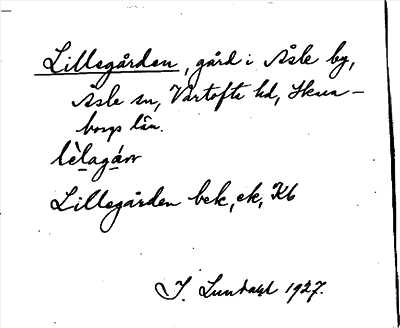 Lillegården, gård i Åsle by,
Åsle sn, Vartofta hd, Skara-
borgs län.
lèlagárn
Lillegården bek, ek, Kb
I. Lundahl 1927.